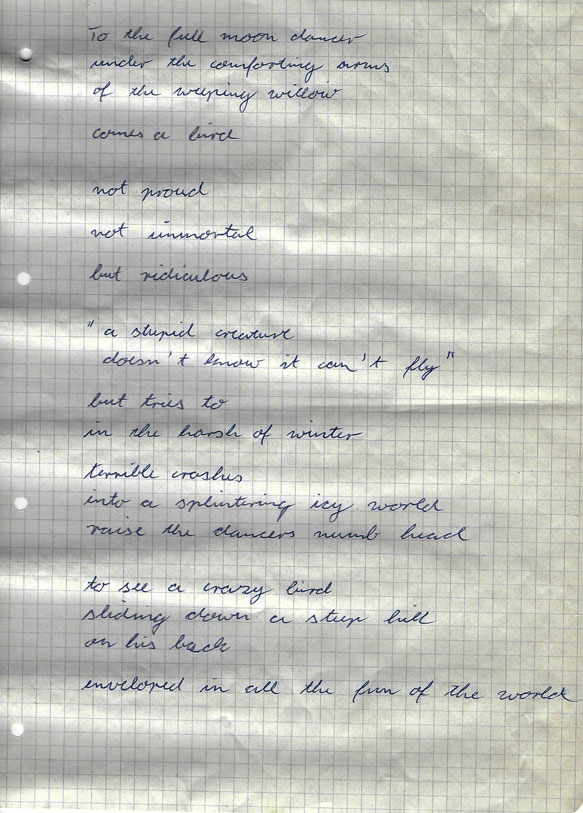 To the full moon dancer
under the comforting arms
of the weeping willow
comes a bird
not proud
not immortal
but ridiculous
"a stupid creature
doesn't know it can't fly"
but tries to
in the harsh of winter
terrible crashes
into a splintering icy world
raise the dancers numb head
to see a crazy bird
sliding down a steep hill
on his back
enveloped in all the fun of the world